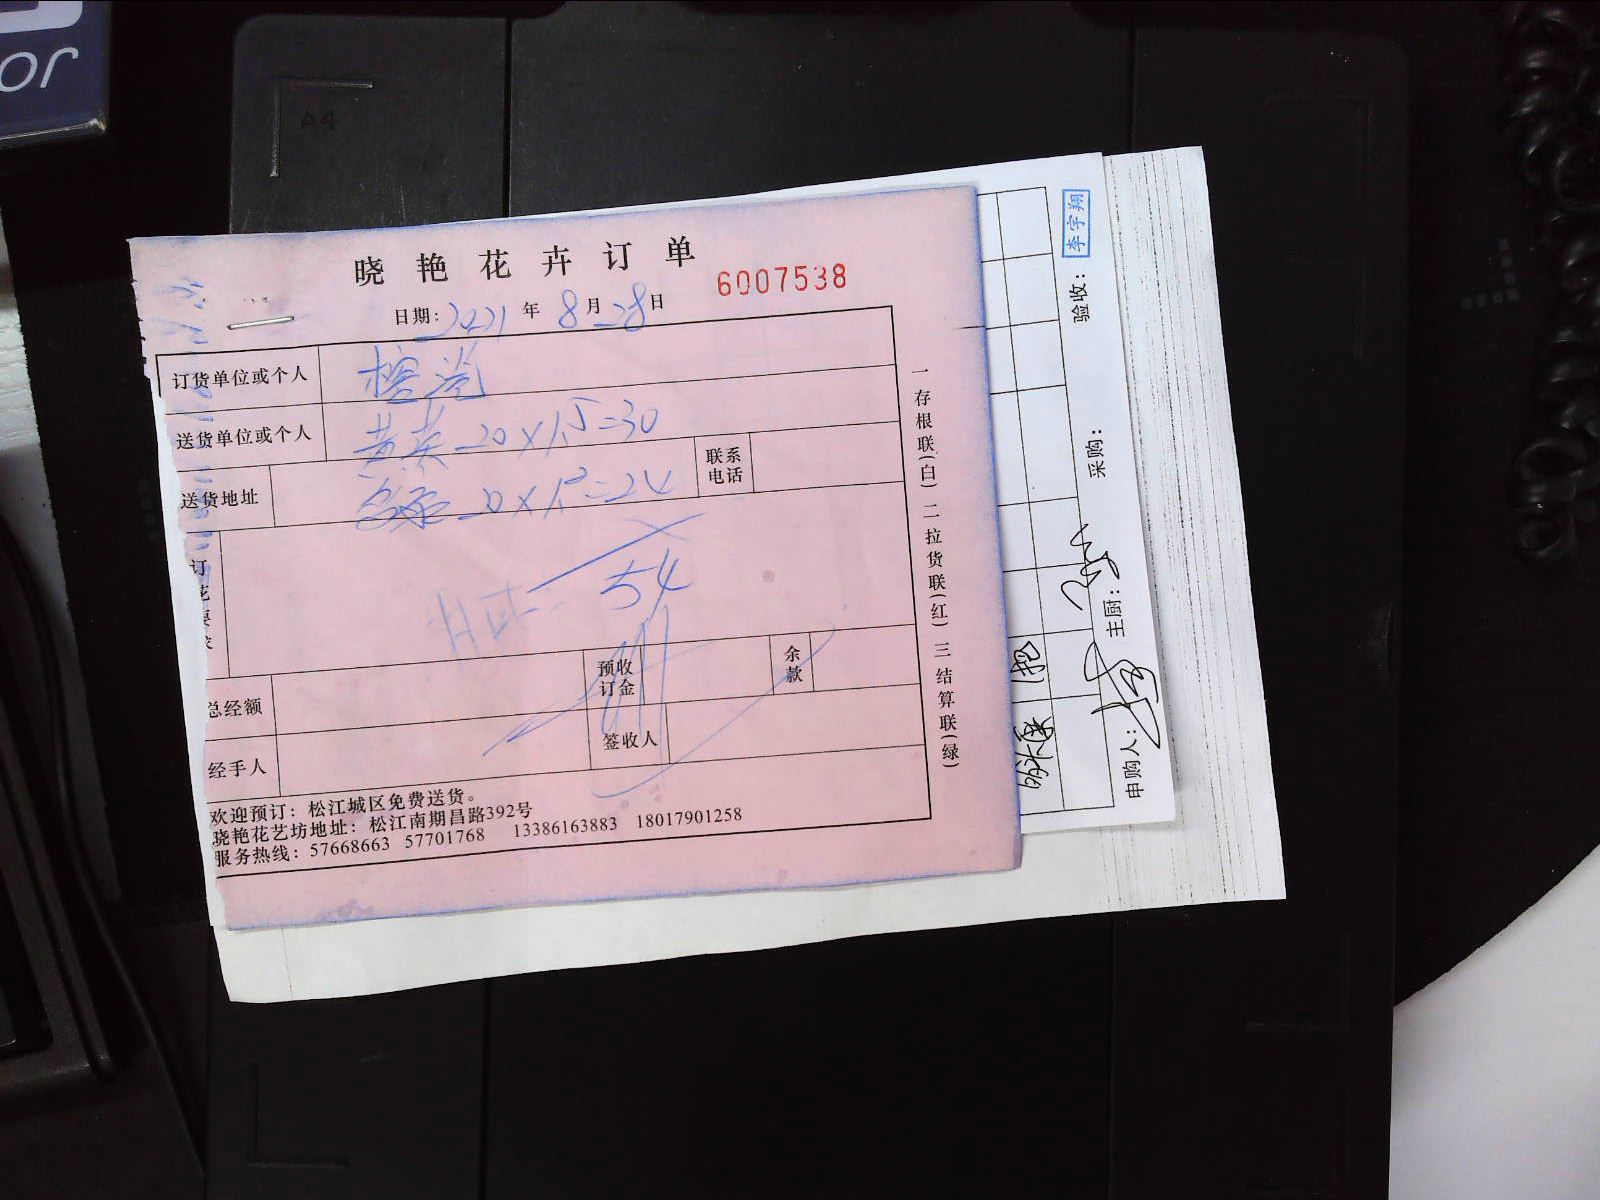 or
A4
晓艳花卉订单
6007538
日期: 2021 年 8 月 28 日
订货单位或个人
送货单位或个人 20×1.5=30
送货地址 20×1.2=24 联系电话
订花要求
54
总经额 预收订金 余款
经手人 签收人
欢迎预订：松江城区免费送货。
晓艳花艺坊地址：松江南期昌路392号
服务热线：57668663 57701768 13386163883 18017901258
一存根联(白) 二拉货联(红) 三结算联(绿)
申购人： 主厨： 采购： 验收： 李宇翔